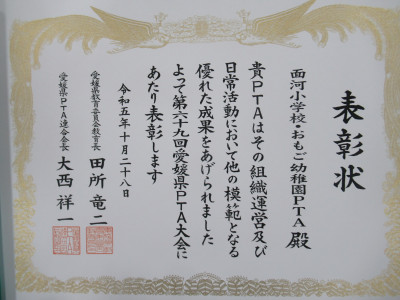 表彰状
面河小学校・おもご幼稚園PTA 殿
貴PTAはその組織運営及び
日常活動において他の模範となる
優れた成果をあげられました
よって第六十九回愛媛県PTA大会に
あたり表彰します
令和五年十月二十八日
愛媛県教育委員会教育長 田所竜二
愛媛県PTA連合会会長 大西祥一